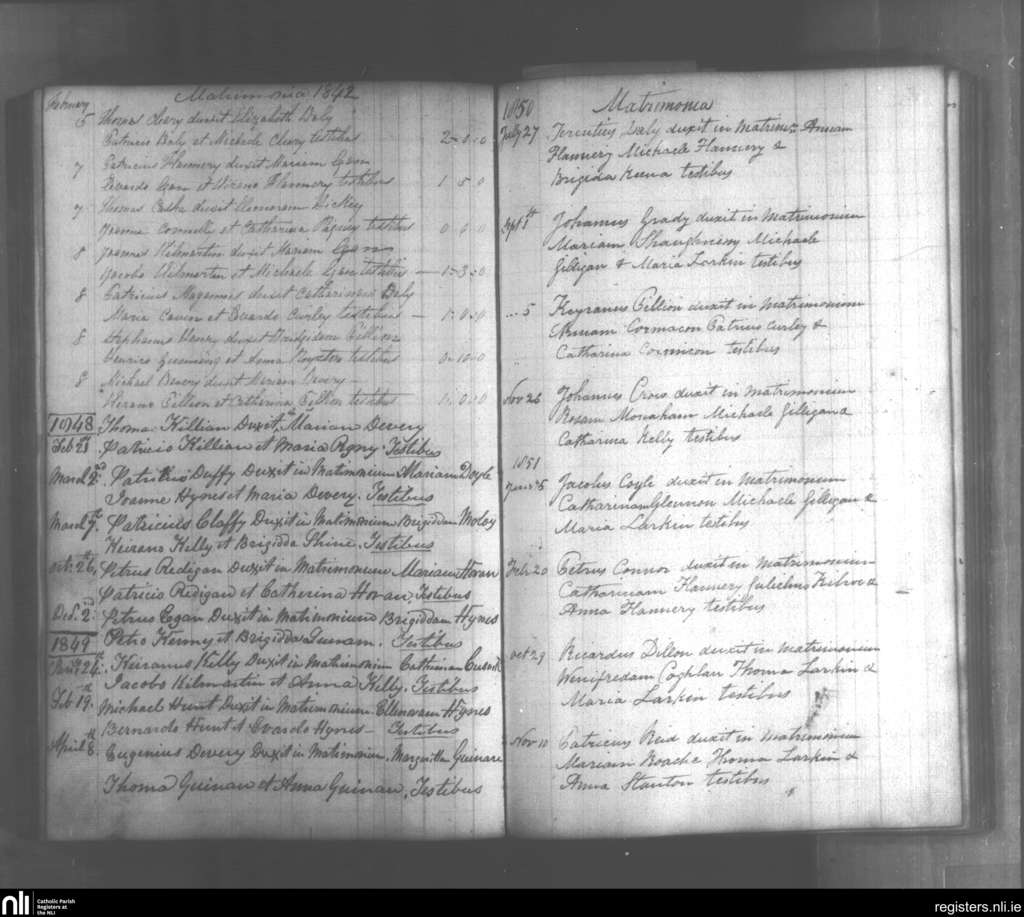 Matrimonia 1842
February
5 Thomas Clery duxit Elizabeth Daly
Patricio Daly et Michaele Clery testibus 2-0-0
7 Patricius Flannery duxit Mariam Egan
Flannery testibus 1 5 0
7 Thomas duxit Honoram Hickey
Joanne et Catharina testibus 0 6 0
8 Joannes Kilmartin duxit Mariam
Jacobo Kilmartin et Michaele testibus — 1-3-0
8 Patricius duxit Catharinam Daly
Maria et Edvardo Curley testibus — 1-0-0
8 Stephanus duxit Bridgidam Killion
Henrico et Anna testibus 0-10-0
8 Michael Devery duxit Mariam Devery —
Kierano Killion et Catherina Killion testibus 1-0-0
1848 Thoma Killian Duxit in M Marian Devery
Feb 21st Patricio Killian et Maria Testibus
March 2nd Patritius Duffy Duxit in Matrimonium Mariam Doyle
Joanne Hynes et Maria Devery. Testibus
March 7th Patricius Claffy Duxit in Matrimonium Brigiddam Moloy
Keirano Kelly et Brigidda Shine. Testibus
Oct. 26th, Petrus Redigan Duxit in Matrimonium Mariam Horan
Patricio Redigan et Catherina Horan, Testibus
Dec. 2nd: Petrus Cogan Duxit in Matrimonium Brigiddam Hynes
1849 Petro Kenny et Brigidda Testibus
24th: Keiranus Kelly Duxit in Matrimonium Cathrinam Cusack
Jacobo Kilmartin et Anna Kelly. Testibus
Feb 19th. Michael Hunt Duxit in Matrimonium Ellenoram Hynes
Bernardo Hunt et Evardo Hynes — Testibus
April 8th. Eugenius Devery Duxit in Matrimonium. Margaritta Guinan
Thoma Guinan et Anna Guinan, Testibus
1850 Matrimonia
July 27 Terentius Daly duxit in Matrimm Annam
Flannery Michaele Flannery &
Brigida Keena testibus
Sept 1st Johannes Grady duxit in Matrimonium
Mariam Shaughnessy Michaele
Gilligan & Maria Larkin testibus
... 5 Keyranus Killion duxit in Matrimonium
Annam Cormacon Patrius Curley &
Catharina Cormicon testibus
Nov 26 Johannes Cross duxit in matrimonium
Rosam Monaham Michaele Gilligan &
Catharina Kelly testibus
1851
Jacobus Coyle duxit in Matrimonium
Catharinam Glennon Michaele Gilligan &
Maria Larkin testibus
Feb 20 Petrus Connor duxit in matrimonium
Catharinam Flannery Gulielmo Kilroe &
Anna Flannery testibus
Oct 29 Ricardus Dillon duxit in matrimonium
Winifredam Coghlan Thoma Larkin &
Maria Larkin testibus
Nov 10 Patricius Reid duxit in Matrimonium
Mariam Roache Thoma Larkin &
Anna Stanton testibus
nli Catholic Parish
Registers at
the NLI
registers.nli.ie